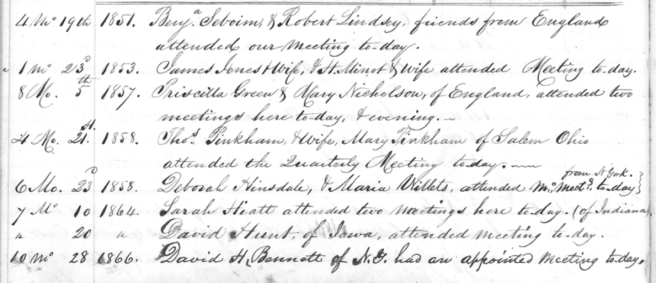 4 Mo 19th 1851. Benj.a Seboim, & Robert Lindsey, friends from England
attended our meeting to-day.
1 mo 23d 1853. James Jones & Wife, & H. Minot & Wife attended Meeting to-day.
8 Mo. 5th 1857. Priscilla Green & Mary Nicholson, of England, attended two
meetings here to-day, & evening.
4 Mo. 21st. 1858. Thos. Pinkham, & wife, Mary Pinkham of Salem Ohio
attended the Quarterly Meeting to-day.
from N. York.
6 Mo. 23d 1858. Deborah Hinsdale, & Maria Willets, attended Mo. Meetg. to-day
7 Mo 10 1864. Sarah Hiatt attended two meetings here to-day. (of Indiana)
" 20 " David Hunt, of Iowa, attended meeting to-day.
10 mo 28 1866. David H. Bennett of N.Y. had an appointed meeting to-day.